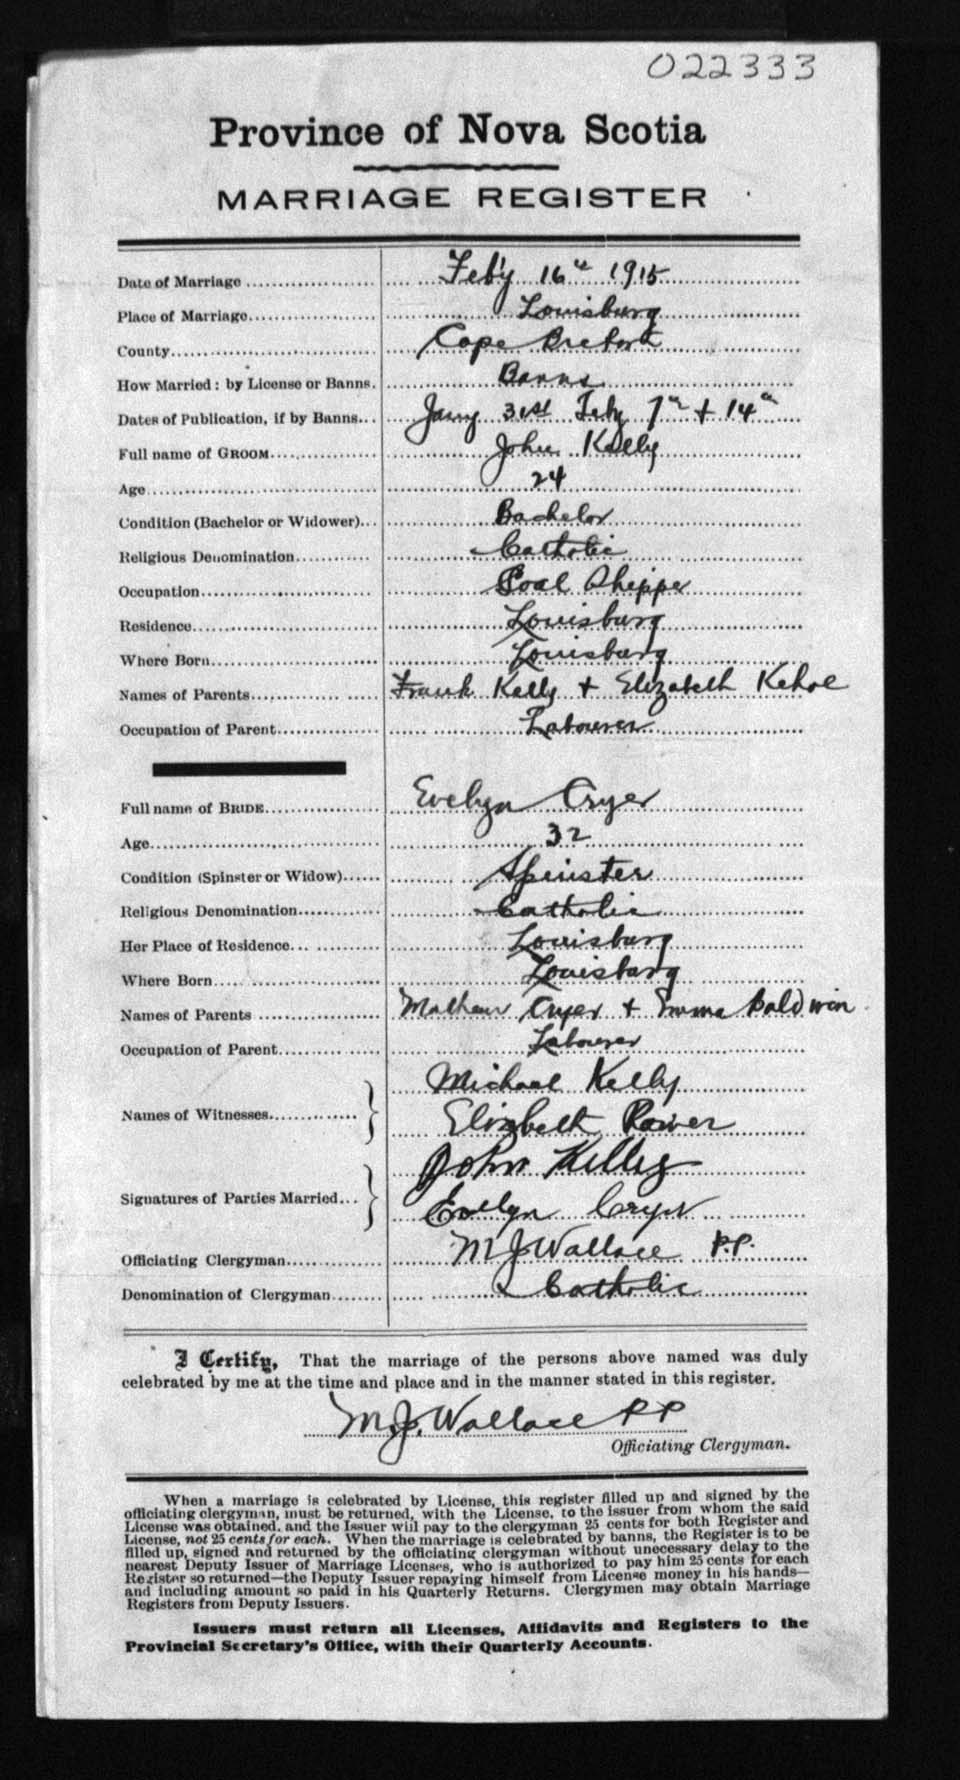 022333
Province of Nova Scotia
MARRIAGE REGISTER
Date of Marriage Feb'y 16th 1915
Place of Marriage Louisburg
County Cape Breton
How Married: by License or Banns. Banns
Dates of Publication, if by Banns Jany 31st Feby 7th + 14th
Full name of GROOM John Kelly
Age 24
Condition (Bachelor or Widower) Bachelor
Religious Denomination Catholic
Occupation Coal Shipper
Residence Louisburg
Where Born Louisburg
Names of Parents Frank Kelly + Elizabeth Kehoe
Occupation of Parent Labourer
Full name of BRIDE Evelyn Cryer
Age 32
Condition (Spinster or Widow) Spinster
Religious Denomination Catholic
Her Place of Residence Louisburg
Where Born Louisburg
Names of Parents Mathew Cryer + Emma Baldwin
Occupation of Parent Labourer
Names of Witnesses Michael Kelly
Elizabeth Power
Signatures of Parties Married John Kelly
Evelyn Cryer
Officiating Clergyman M J Wallace P.P.
Denomination of Clergyman Catholic
I Certify, That the marriage of the persons above named was duly
celebrated by me at the time and place and in the manner stated in this register.
M.J. Wallace PP
Officiating Clergyman.
When a marriage is celebrated by License, this register filled up and signed by the
officiating clergyman, must be returned, with the License, to the issuer from whom the said
License was obtained, and the Issuer will pay to the clergyman 25 cents for both Register and
License, not 25 cents for each. When the marriage is celebrated by banns, the Register is to be
filled up, signed and returned by the officiating clergyman without unecessary delay to the
nearest Deputy Issuer of Marriage Licenses, who is authorized to pay him 25 cents for each
Register so returned—the Deputy Issuer repaying himself from License money in his hands—
and including amount so paid in his Quarterly Returns. Clergymen may obtain Marriage
Registers from Deputy Issuers.
Issuers must return all Licenses, Affidavits and Registers to the
Provincial Secretary's Office, with their Quarterly Accounts.